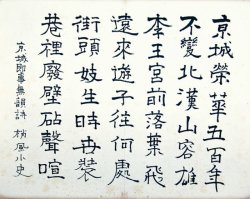 京城榮華五百年
不變北漢山容雄
李王宮前落葉飛
遠來遊子往何處
街頭妓生時再裝
巷裡廢壁砧聲喧
京城即事無韻詩 梢風小史